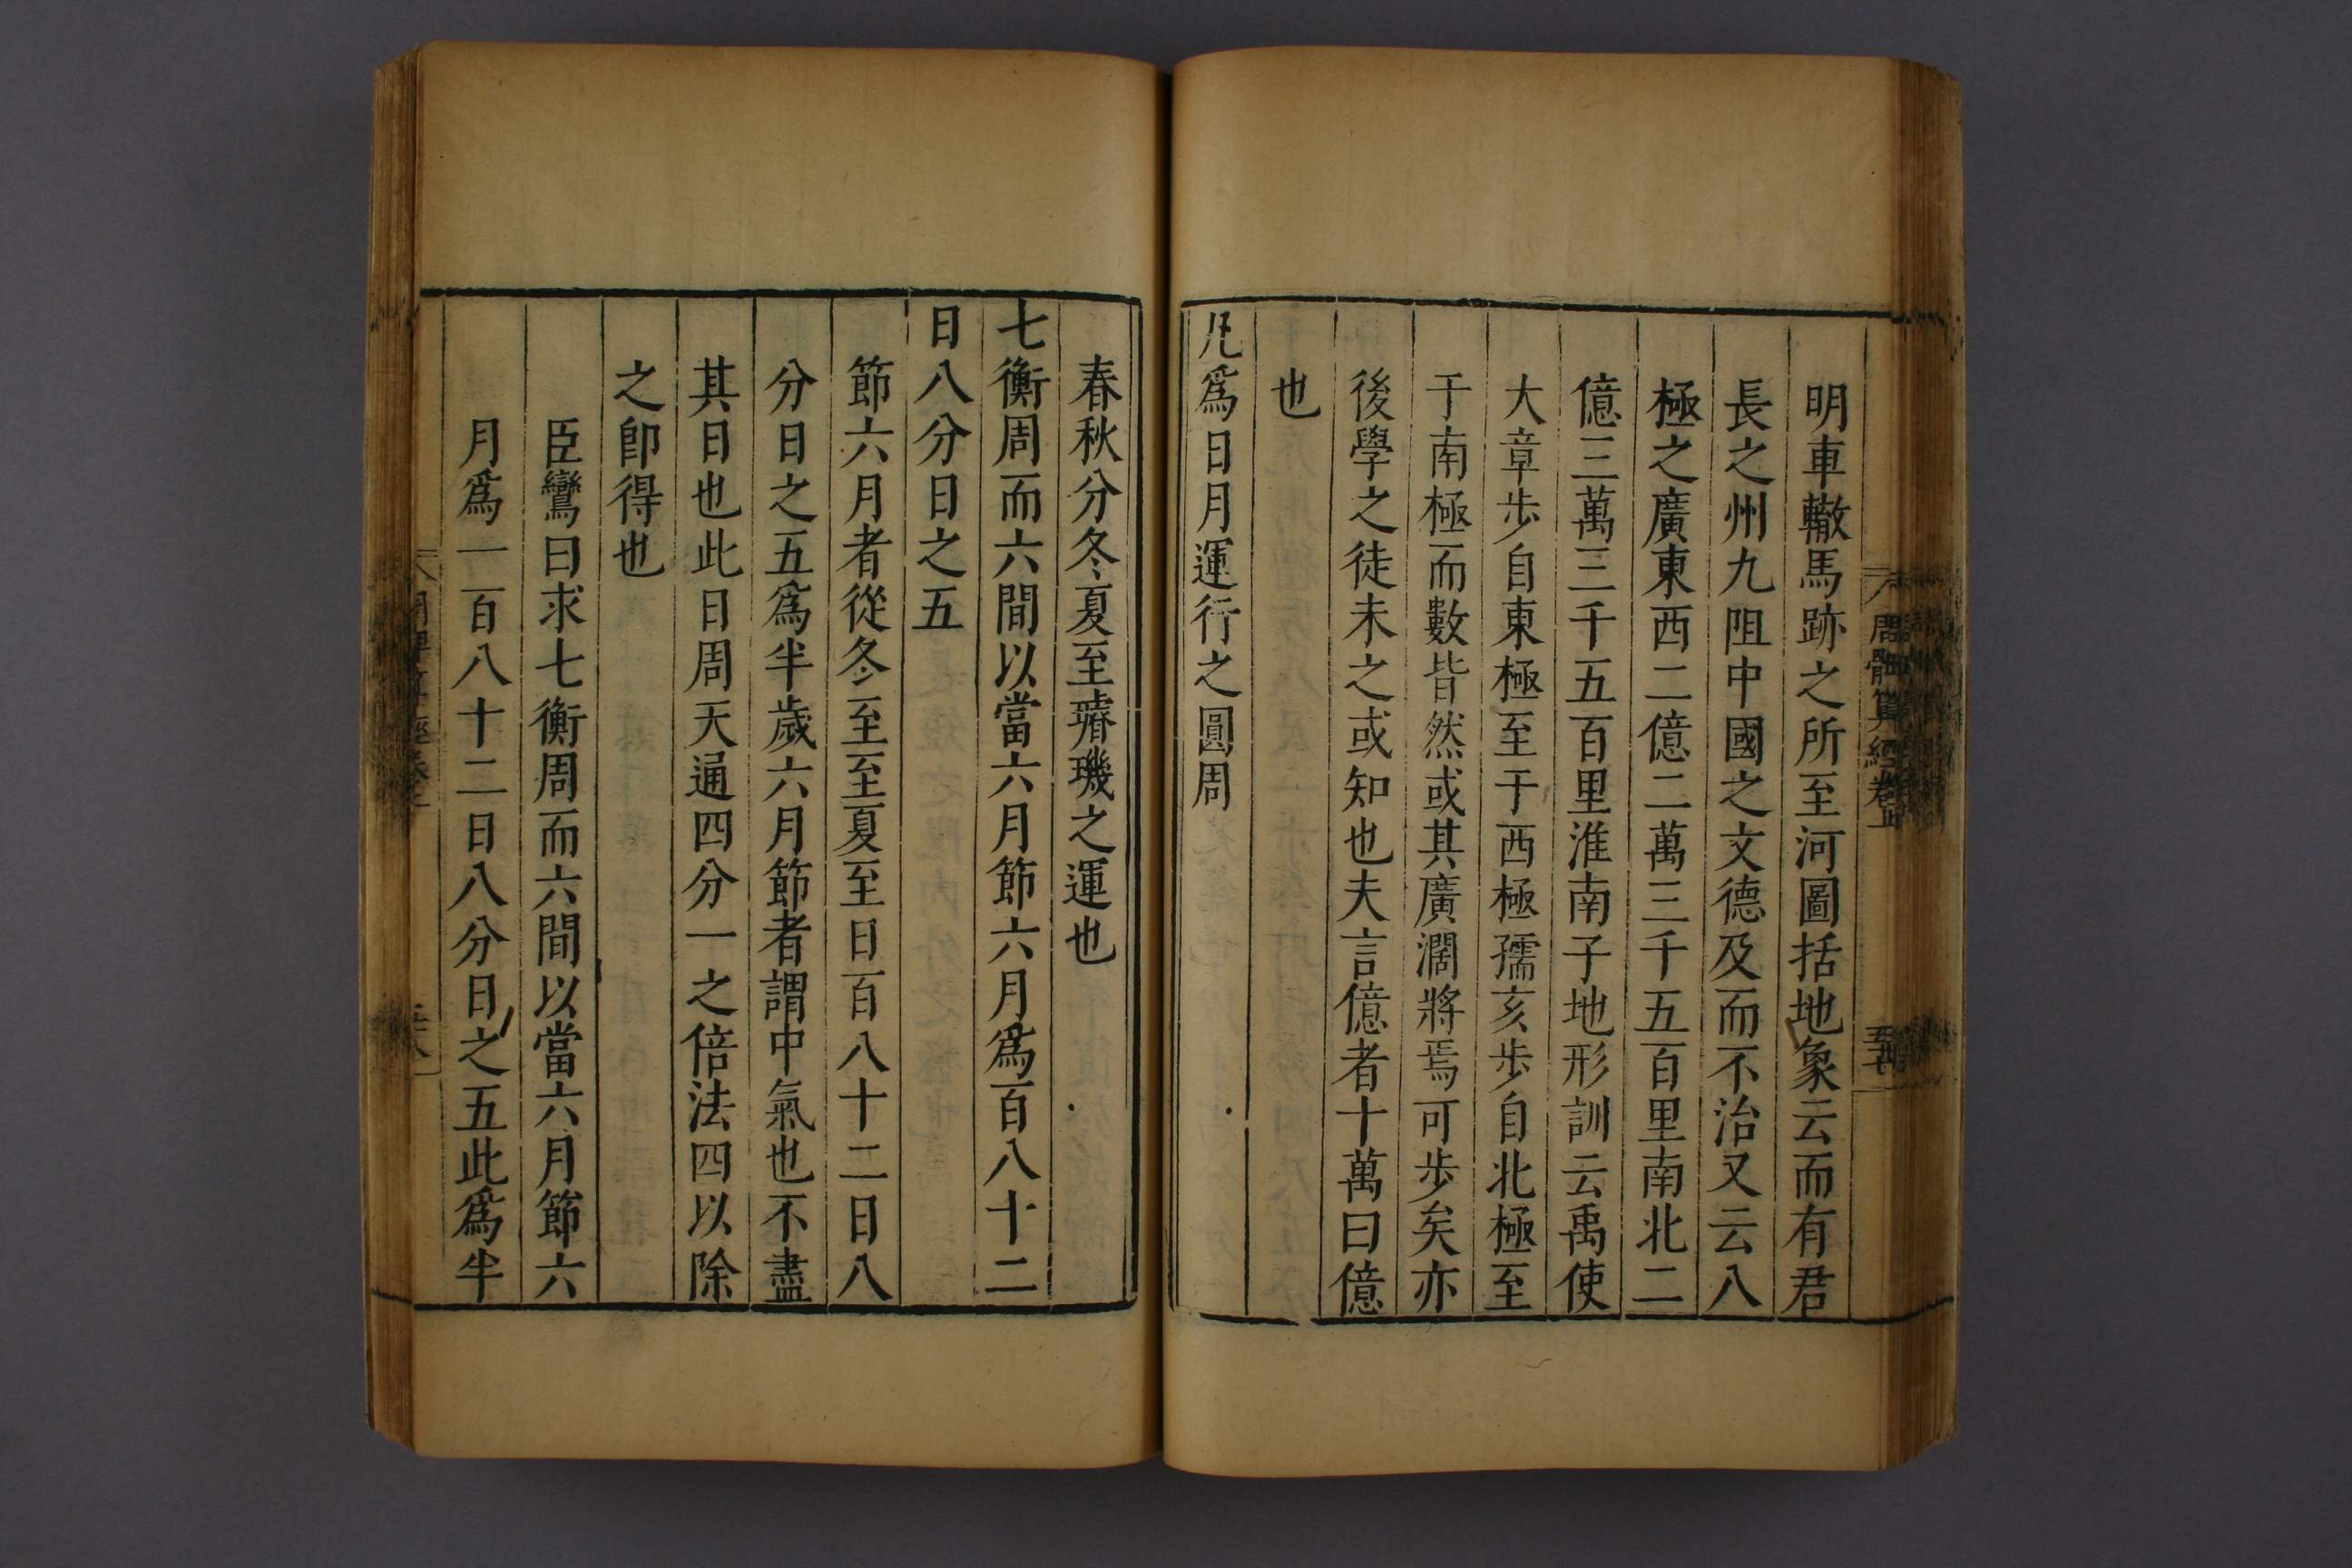 明車轍馬跡之所至河圖括地象云而有君
長之州九阻中國之文德及而不治又云八
極之廣東西二億二萬三千五百里南北二
億三萬三千五百里淮南子地形訓云禹使
大章步自東極至于西極孺亥步自北極至
于南極而數皆然或其廣濶將焉可步矣亦
後學之徒未之或知也夫言億者十萬曰億
也
凡爲日月運行之圓周
春秋分冬夏至璿璣之運也
七衡周而六間以當六月節六月爲百八十二
日八分日之五
節六月者從冬至至夏至日百八十二日八
分日之五爲半歲六月節者謂中氣也不盡
其日也此日周天通四分一之倍法四以除
之卽得也
臣鸞曰求七衡周而六間以當六月節六
月爲一百八十二日八分日之五此爲半